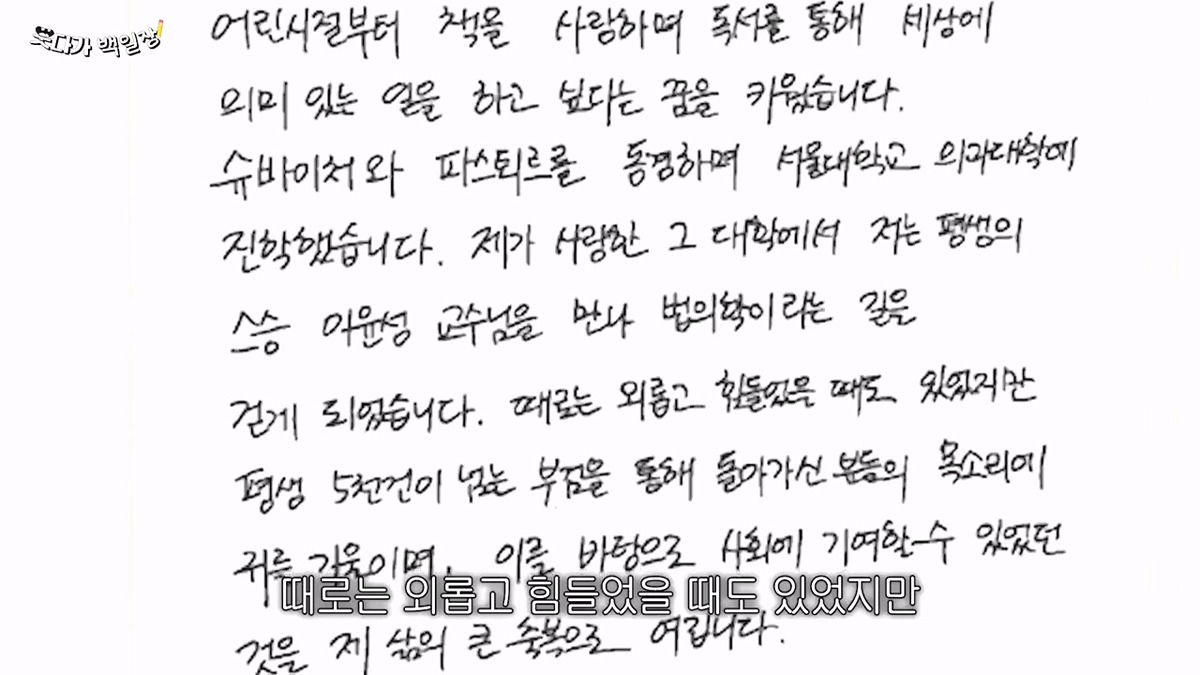 웃다가 백일장
어린시절부터 책을 사랑하며 독서를 통해 세상에
의미 있는 일을 하고 싶다는 꿈을 키웠습니다.
슈바이처와 파스퇴르를 동경하며 서울대학교 의과대학에
진학했습니다. 제가 사랑한 그 대학에서 저는 평생의
스승 이윤성 교수님을 만나 법의학이라는 길을
걷게 되었습니다. 때로는 외롭고 힘들었을 때도 있었지만
평생 5천건이 넘는 부검을 통해 돌아가신 분들의 목소리에
귀를 기울이며, 이를 바탕으로 사회에 기여할 수 있었던
때로는 외롭고 힘들었을 때도 있었지만
것을 제 삶의 큰 축복으로 여깁니다.